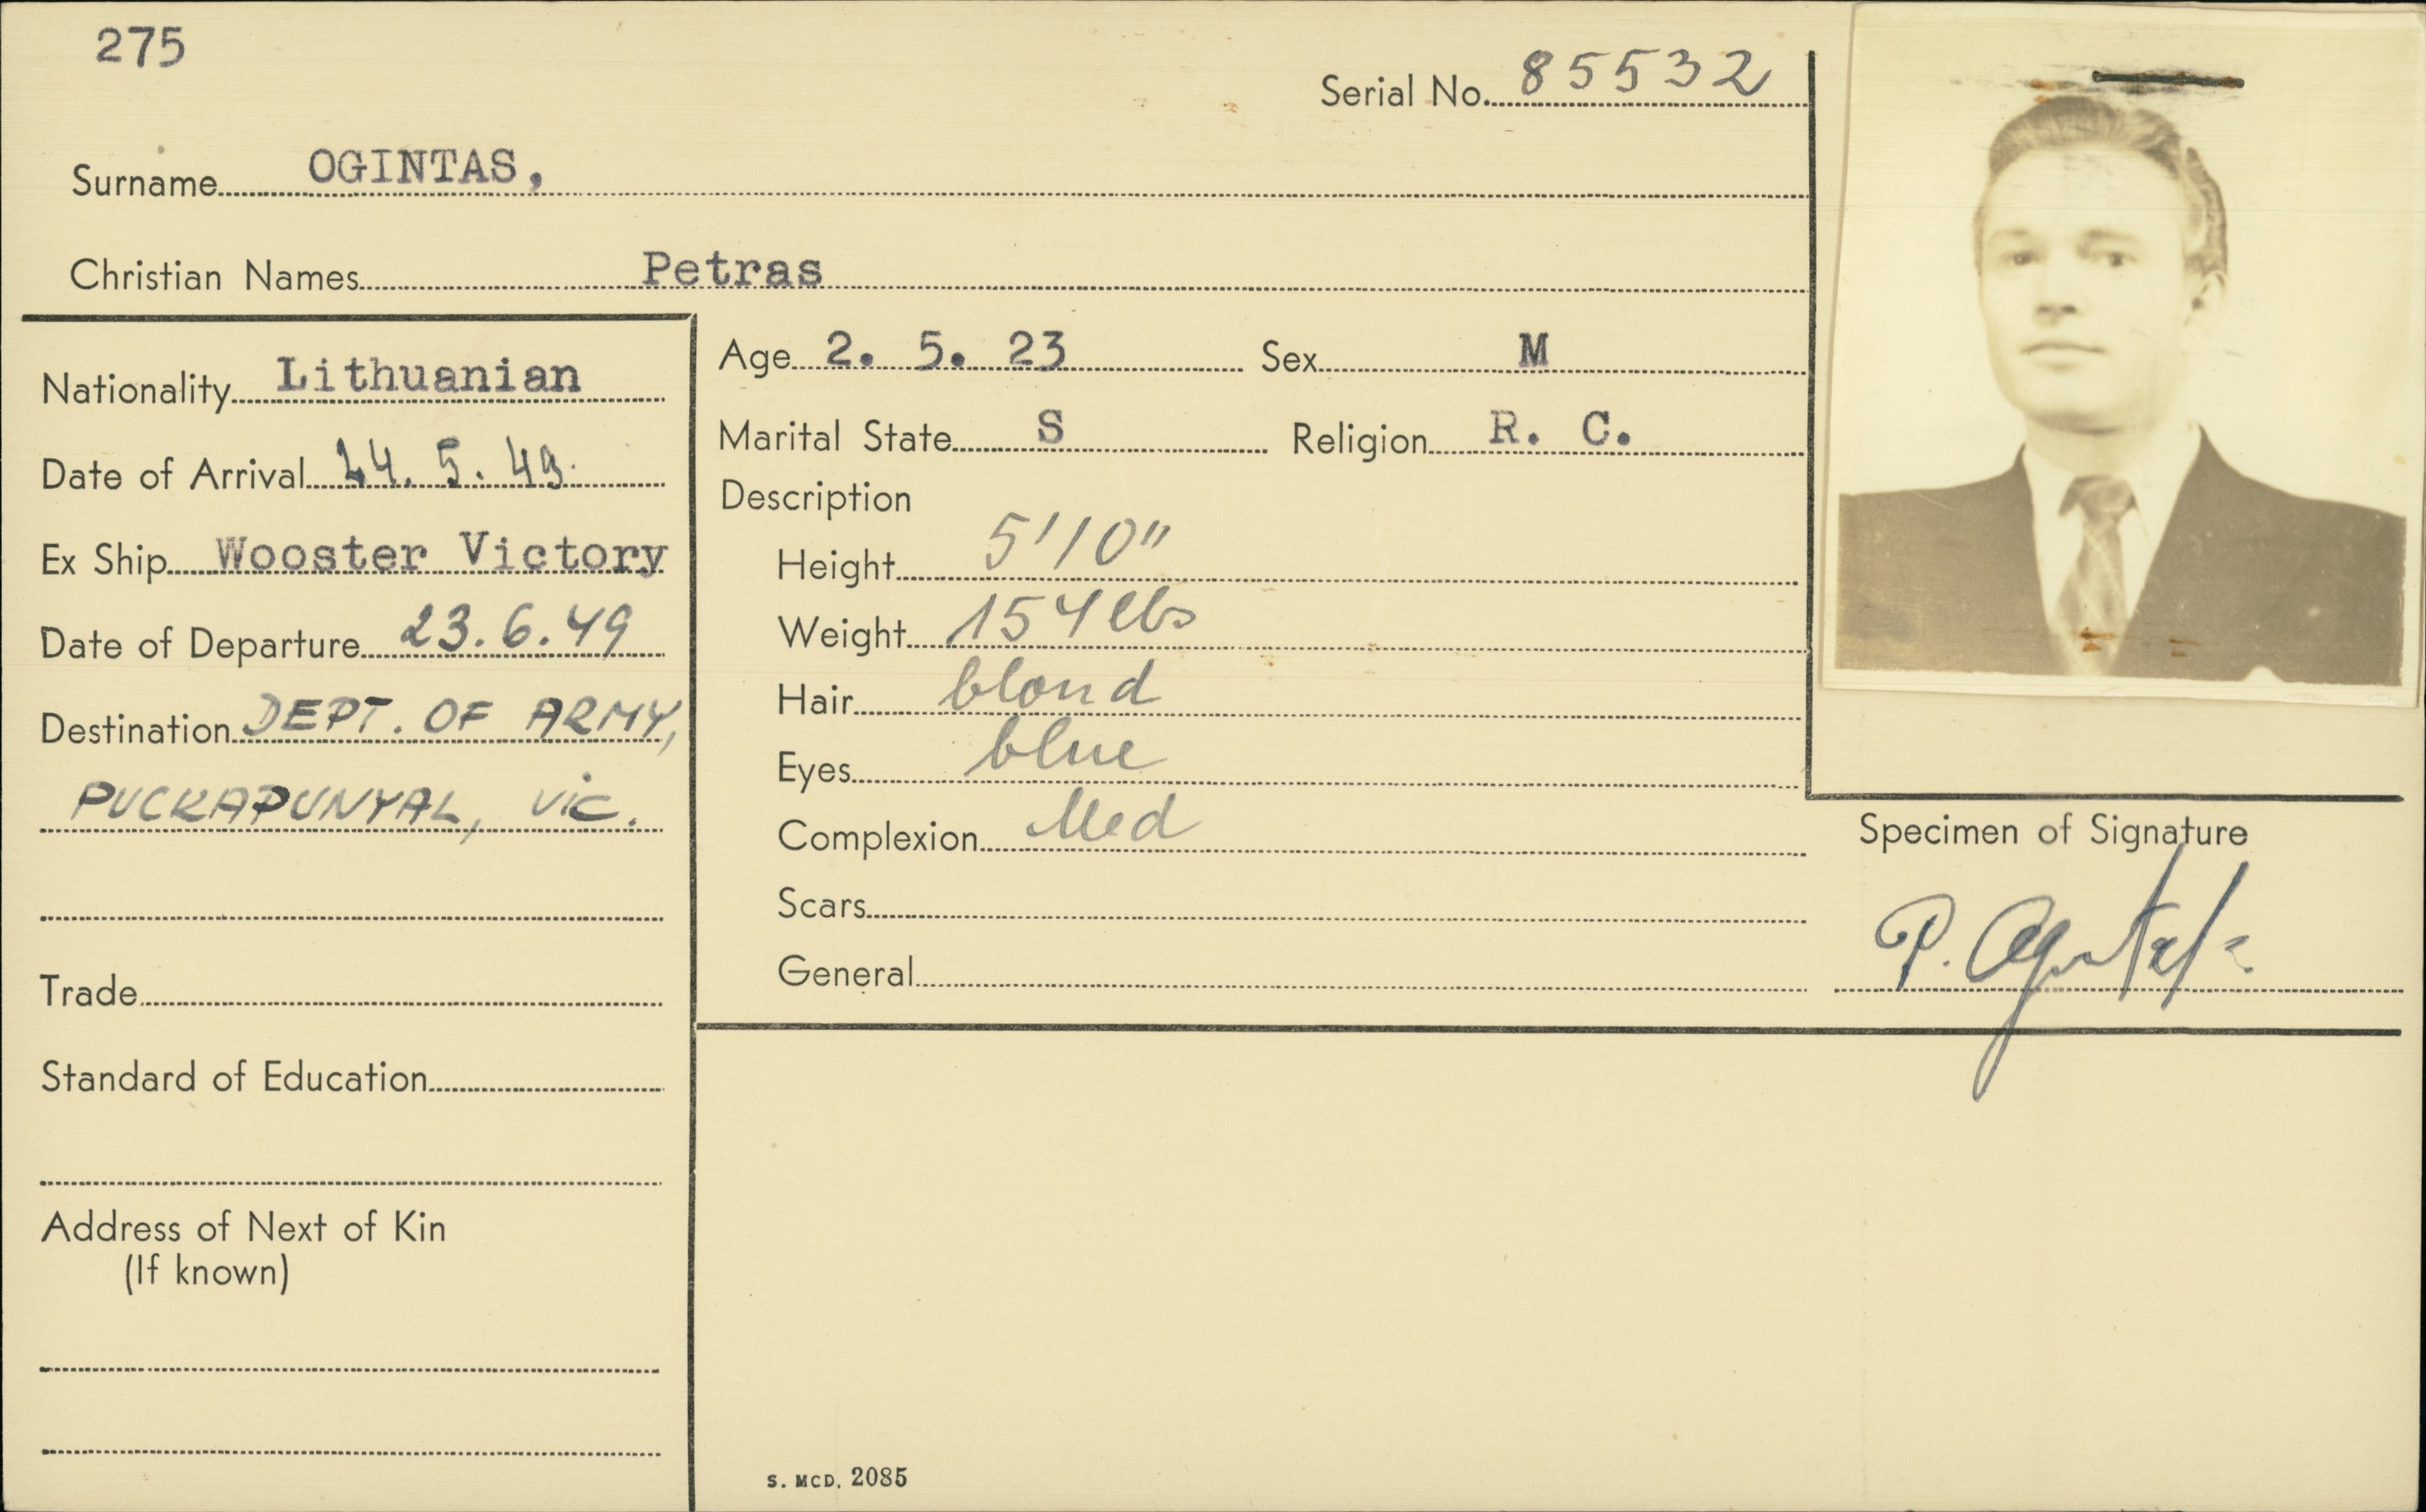 275
Serial No. 85532
Surname OGINTAS,
Christian Names Petras
Nationality Lithuanian
Date of Arrival 24. 5. 49.
Ex Ship Wooster Victory
Date of Departure 23.6.49
Destination DEPT. OF ARMY,
PUCKAPUNYAL, VIC.
Trade
Standard of Education
Address of Next of Kin
(If known)
Age 2. 5. 23 Sex M
Marital State S Religion R. C.
Description
Height 5'10"
Weight 154 lbs
Hair blond
Eyes blue
Complexion Med
Scars
General
Specimen of Signature
P.
S. McD. 2085